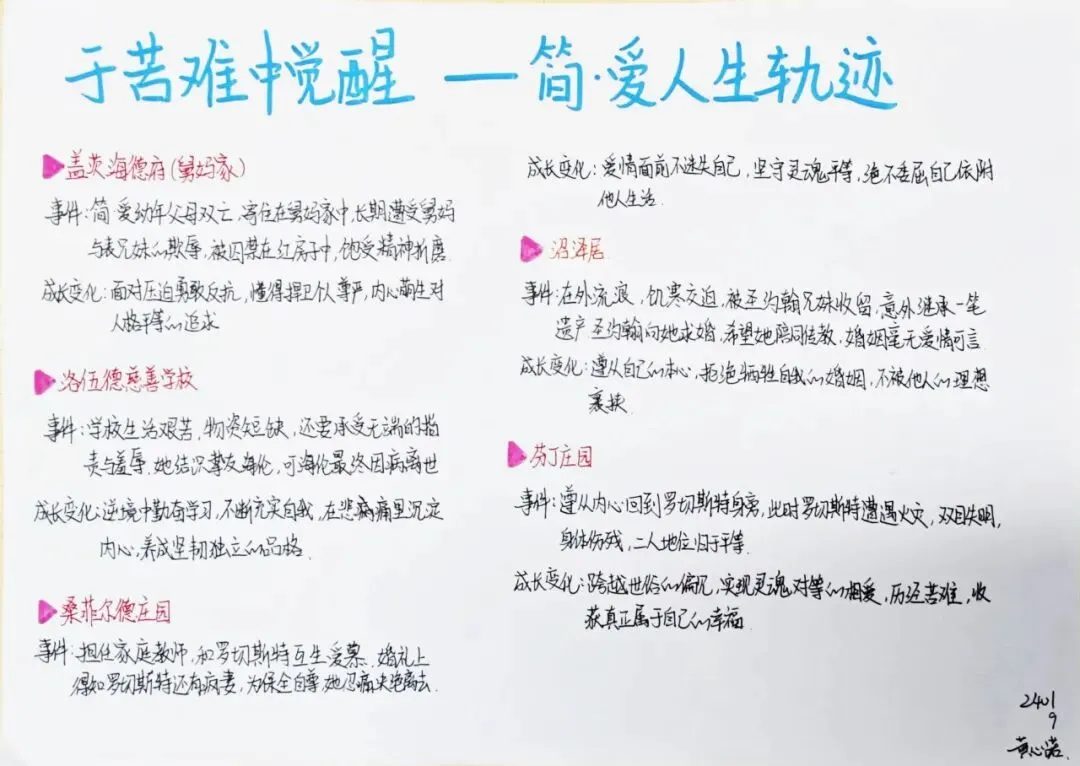 于苦难中觉醒 —— 简·爱人生轨迹
盖茨海德府(舅妈家)
事件:简·爱幼年父母双亡,寄住在舅妈家中,长期遭受舅妈
与表兄妹的欺辱,被囚禁在红房子中,饱受精神折磨.
成长变化:面对压迫勇敢反抗,懂得捍卫个人尊严,内心萌生对
人格平等的追求
洛伍德慈善学校
事件:学校生活艰苦,物资短缺,还要承受无端的指
责与羞辱,她结识挚友海伦,可海伦最终因病离世
成长变化:逆境中勤奋学习,不断充实自我,在悲痛痛里沉淀
内心,养成坚韧独立的品格.
桑菲尔德庄园
事件:担任家庭教师,和罗切斯特互生爱慕.婚礼上
得知罗切斯特还有病妻,为保全自尊,她忍痛决绝离去.
成长变化:爱情面前不迷失自己,坚守灵魂平等,绝不委屈自己依附
他人生活.
沼泽居
事件:在外流浪,饥寒交迫,被圣约翰兄妹收留,意外继承一笔
遗产圣约翰向她求婚,希望她陪同传教,婚姻毫无爱情可言
成长变化:遵从自己的本心,拒绝牺牲自我的婚姻,不被他人的理想
裹挟.
芬丁庄园
事件:遵从内心回到罗切斯特身旁,此时罗切斯特遭遇火灾,双目失明,
身体伤残,二人地位归于平等.
成长变化:跨越世俗的偏见,实现灵魂对等的相爱,历经苦难,收
获真正属于自己的幸福.
2401
9
黄心诺.